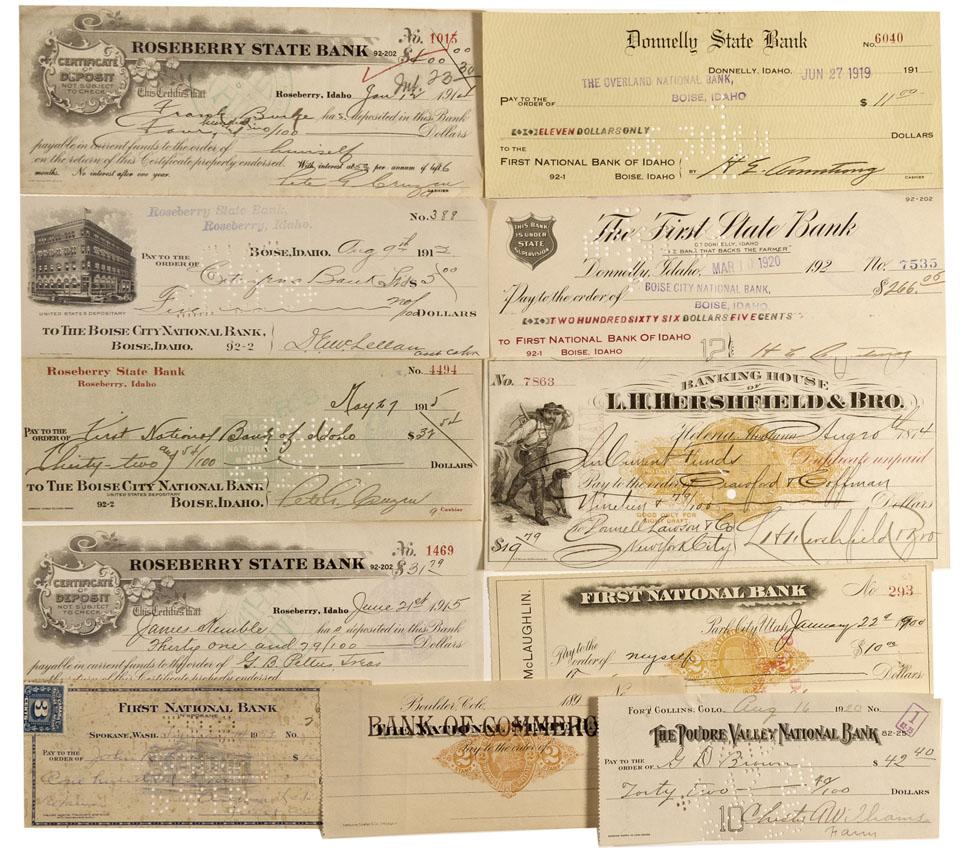 ROSEBERRY STATE BANK 92-202
No. 1015
$400.00
CERTIFICATE OF DEPOSIT NOT SUBJECT TO CHECK
This Certifies that
Roseberry, Idaho Jan 12 191
Frank Burke has deposited in this Bank
Four hundred no/100 Dollars
payable in current funds to the order of himself
on the return of this Certificate properly endorsed. With interest at 5% per annum if left 6
months. No interest after one year.
CASHIER
Donnelly State Bank
No. 6040
DONNELLY, IDAHO, JUN 27 1919 191
THE OVERLAND NATIONAL BANK,
BOISE, IDAHO
PAY TO THE ORDER OF
$ 11.00
ELEVEN DOLLARS ONLY
DOLLARS
TO THE
FIRST NATIONAL BANK OF IDAHO
92-1 BOISE, IDAHO
BY H E Armstrong
CASHIER
Roseberry State Bank,
Roseberry, Idaho.
No. 388
BOISE, IDAHO, Aug 9th 191
PAY TO THE ORDER OF Citizens Bank
no/100 DOLLARS
UNITED STATES DEPOSITARY
TO THE BOISE CITY NATIONAL BANK,
BOISE, IDAHO. 92-2
asst cashr
92-202
THIS BANK IS UNDER STATE SUPERVISION
The First State Bank
OF DONNELLY, IDAHO
"THE BANK THAT BACKS THE FARMER"
Donnelly, Idaho, MAR 10 1920 192
No. 7535
BOISE CITY NATIONAL BANK,
BOISE, IDAHO
Pay to the order of
$266.05
TWO HUNDRED SIXTY SIX DOLLARS FIVE CENTS
TO FIRST NATIONAL BANK OF IDAHO
92-1 BOISE, IDAHO
H E Armstrong
Roseberry State Bank
Roseberry, Idaho
No. 4494
May 29 1915
PAY TO THE ORDER OF First National Bank of Idaho $32.54
Thirty-two and 54/100 DOLLARS
TO THE BOISE CITY NATIONAL BANK,
UNITED STATES DEPOSITARY
92-2 BOISE, IDAHO.
Cashier
No. 7863
BANKING HOUSE
OF
L.H. HERSHFIELD & BRO.
Helena Montana Aug 10th 1874
In Current Funds Duplicate unpaid
Pay to the order Crawford & Coffman
Nineteen & 79/100 Dollars
GOOD ONLY FOR
SIGHT DRAFT
To Donnell Lawson & Co
New York City
$19.79
L H Hershfield & Bro
ROSEBERRY STATE BANK 92-202
No. 1469
$31.79
CERTIFICATE OF DEPOSIT NOT SUBJECT TO CHECK
This Certifies that
Roseberry, Idaho June 21st 1915
James Kimble has deposited in this Bank
Thirty one and 79/100 Dollars
payable in current funds to the order of G. B. Pettus, Treas
FIRST NATIONAL BANK
No 293
McLAUGHLIN.
Park City, Utah, January 22d 1900
Pay to the order of myself $10.00
Dollars
FIRST NATIONAL BANK
OF SPOKANE
SPOKANE, WASH.
No.
PAY TO THE ORDER OF
$
2
Boulder, Colo. 189 No
BANK OF COMMERC
Pay to the order of
2
2
FORT COLLINS, COLO. Aug 16 1920 No.
THE POUDRE VALLEY NATIONAL BANK 82-25
PAY TO THE ORDER OF G D Brown $42.40
Forty two 40/100 DOLLARS
10
Chester A Williams
Farm